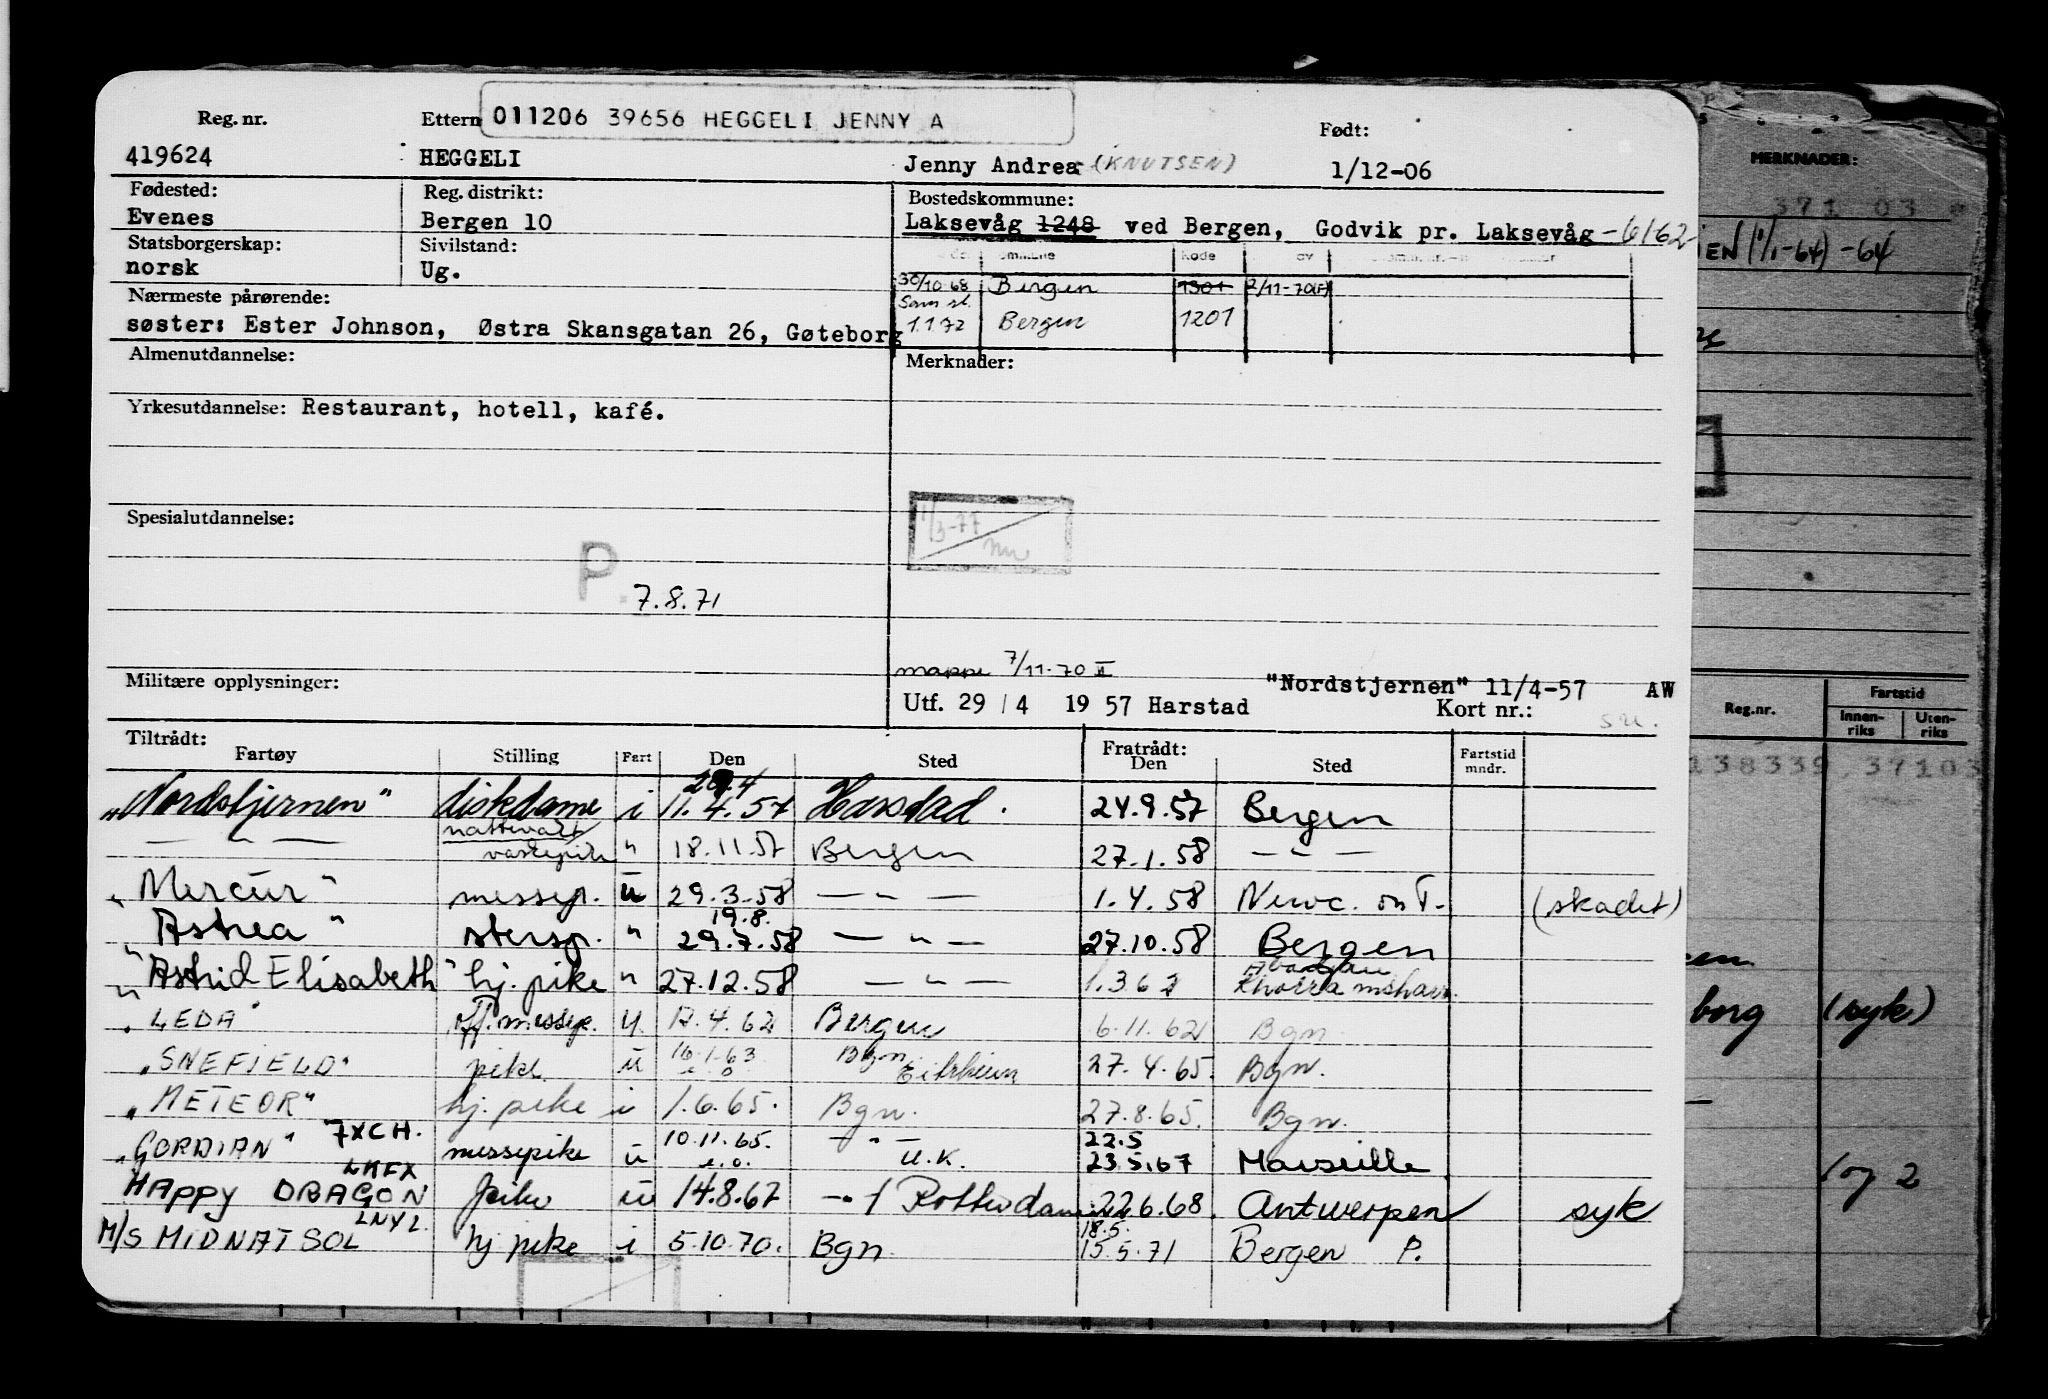 Reg. nr.
Ettern
011206 39656 HEGGELI JENNY A
Født:
419624
HEGGELI
Jenny Andrea (KNUTSEN)
1/12-06
Fødested:
Reg. distrikt:
Bostedskommune:
Evenes
Bergen 10
Laksevåg 1248 ved Bergen, Godvik pr. Laksevåg -6162
Statsborgerskap:
Sivilstand:
norsk
Ug.
Kode
30/10 68 Bergen 1301 2/11-70(F)
Nærmeste pårørende:
søster: Ester Johnson, Østra Skansgatan 26, Gøteborg
1.1 72 Bergen 1201
Almenutdannelse:
Merknader:
Yrkesutdannelse: Restaurant, hotell, kafé.
1/3-77
Spesialutdannelse:
P.
7.8.71
mappe 7/11-70
Militære opplysninger:
"Nordstjernen" 11/4-57 AW
Utf. 29 / 4 19 57 Harstad
Kort nr.:
Tiltrådt:
Fratrådt:
Fartøy Stilling Fart Den Sted Den Sted Fartstid mndr.
"Nordstjernen" diskdame i 11.4.57 Harstad. 24.9.57 Bergen
— " — nattevakt vaskepike " 18.11.57 Bergen 27.1.58 — " —
"Mercur" messep. u 29.3.58 — " — 1.4.58 Newc. on T. (skadet)
"Astrea" " 19.8. 29.7.58 — " — 27.10.58 Bergen
"Astrid Elisabeth" hj. pike " 27.12.58 — " —
"LEDA" 17.4.62 Bergen 6.11.62 Bgn
"SNEFJELD" pike u 16.1.63 Bgn 27.4.65. Bgn.
"METEOR" hj. pike i 1.6.65. Bgn. 27.8.65. Bgn.
"GORDIAN" 7XCH. messepike u 10.11.65. — " — U.K. 22.5 23.5.67 Marseille
HAPPY DRAGON LMFX pike u 14.8.67 Rotterdam 22.6.68. Antwerpen syk
M/S MIDNATSOL hj pike i 5.10.70. Bgn 18.5. 15.5.71 Bergen P.
MERKNADER:
371 03
(1/1-64) -64
Reg.nr.
Fartstid
Innen-
riks
Uten-
riks
138339, 37103
borg (syk)